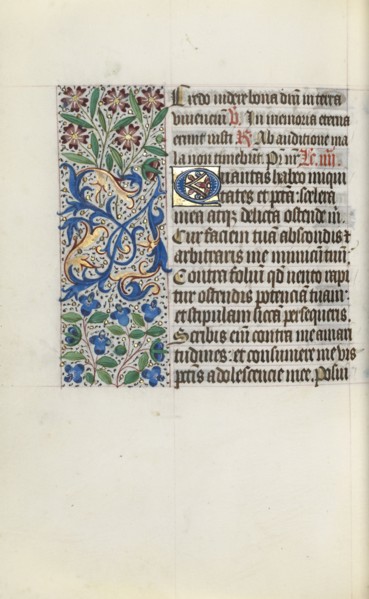 Credo videre bona dñi in terra
viventiũ. V̷. In memoria eterna
erunt iusti R̷. Ab auditione ma
la non timebũt. Pr̃ nr̃ Lc̃. iiii
Quantas habeo iniqui
tates et pctã: scelera
mea atq; delicta ostende m̃.
Cur faciem tuã abscondis ⁊
arbitraris me inimicũ tuũ:
Contra foliũ qd̃ vento rapi
tur ostendis potenciã tuam:
et stipulam siccã persequeris.
Scribis eñi contra me amari
tudines: et consumere me vis
pctĩs adolescencie mee. Posui